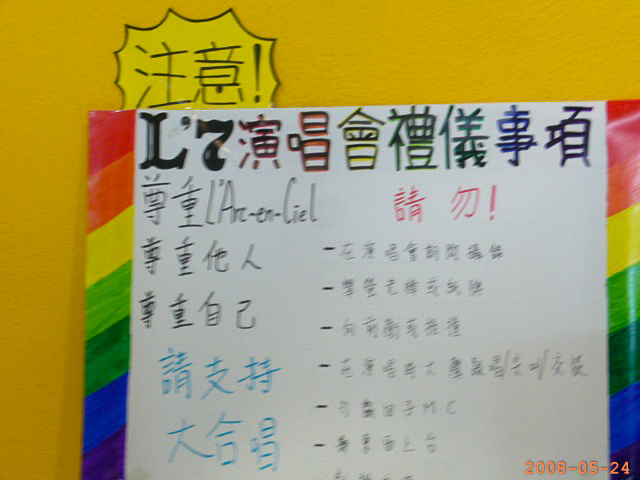 注意!
L'7演唱會禮儀事項
尊重L'Arc-en-Ciel
尊重他人
尊重自己
請支持
大合唱
請勿!
-在演唱會期間攝錄
-舉螢光棒或紙牌
-向前衝或推撞
-在演唱時大聲跟唱/尖叫/交談
-打斷団子MC
-上台
2008-05-24